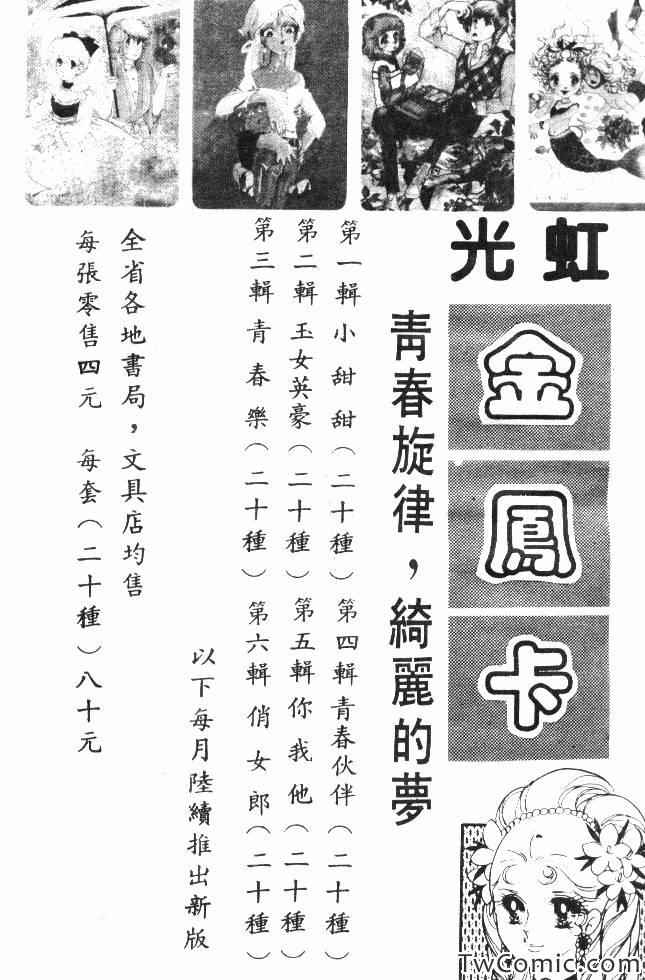 虹光
金鳳卡
青春旋律，綺麗的夢
第一輯 小甜甜（二十種） 第四輯 青春伙伴（二十種）
第二輯 玉女英豪（二十種） 第五輯 你我他（二十種）
第三輯 青春樂（二十種） 第六輯 俏女郎（二十種）
以下每月陸續推出新版
全省各地書局，文具店均售
每張零售四元 每套（二十種）八十元
TwComic.com